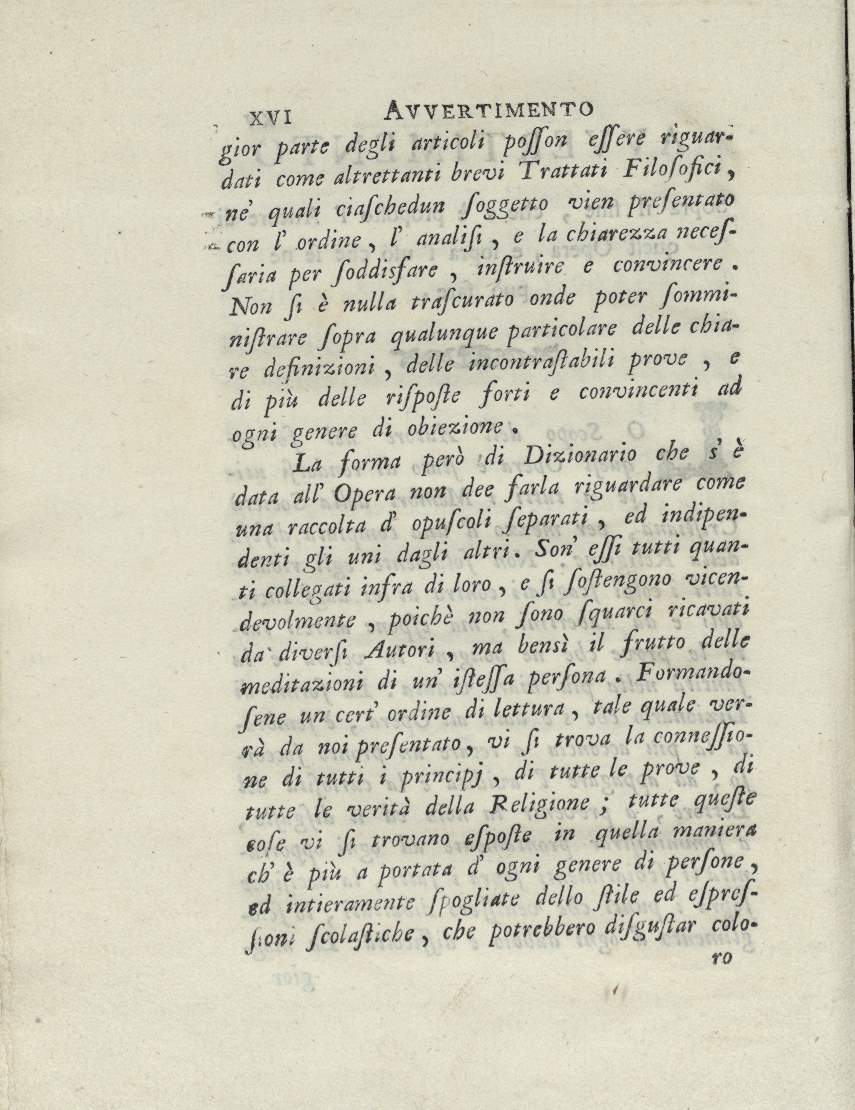 XVI AVVERTIMENTO
gior parte degli articoli poſſon eſſere riguar-
dati come altrettanti brevi Trattati Filoſofici,
ne' quali ciaſchedun ſoggetto vien preſentato
con l' ordine, l' analiſi, e la chiarezza neceſ-
ſaria per ſoddisfare, inſtruire e convincere.
Non ſi è nulla traſcurato onde poter ſommi-
niſtrare ſopra qualunque particolare delle chia-
re definizioni, delle incontraſtabili prove, e
di più delle riſpoſte forti e convincenti ad
ogni genere di obiezione.
La forma però di Dizionario che s' è
data all' Opera non dee farla riguardare come
una raccolta d' opuſcoli ſeparati, ed indipen-
denti gli uni dagli altri. Son' eſſi tutti quan-
ti collegati infra di loro, e ſi ſoſtengono vicen-
devolmente, poichè non ſono ſquarci ricavati
da' diverſi Autori, ma bensì il frutto delle
meditazioni di un' iſteſſa perſona. Formando-
ſene un cert' ordine di lettura, tale quale ver-
rà da noi preſentato, vi ſi trova la conneſſio-
ne di tutti i principj, di tutte le prove, di
tutte le verità della Religione; tutte queſte
coſe vi ſi trovano eſpoſte in quella maniera
ch' è più a portata d' ogni genere di perſone,
ed intieramente ſpogliate dello ſtile ed eſpreſ-
ſioni ſcolaſtiche, che potrebbero diſguſtar colo-
ro